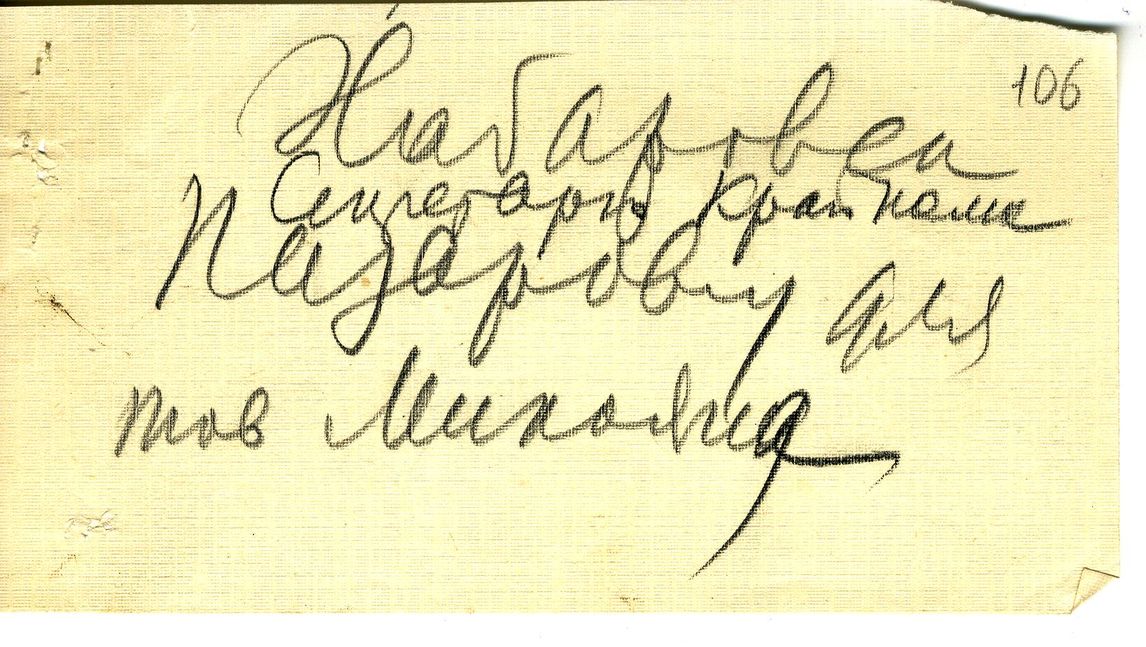 106
Хабаровск
Секретарю крайкома
Назарову для
тов Микояна